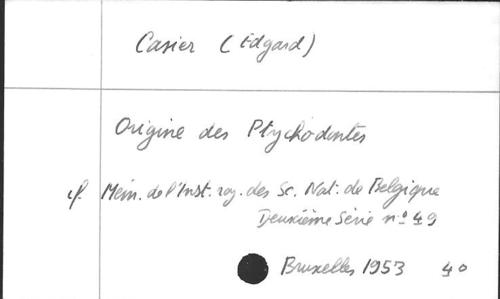 Casier (Edgard)
Origine des Ptychodontes
cf. Mém. de l'Inst. roy. des Sc. Nat. de Belgique
Deuxième Série nº 49
Bruxelles 1953 4º